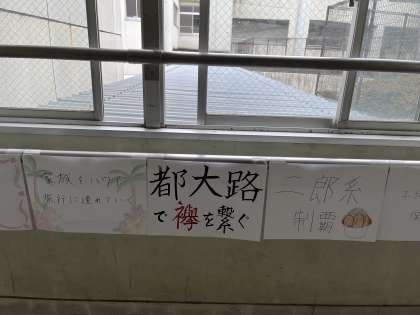 家族をハワイ
旅行に連れていく
都大路
で襷を繋ぐ
二郎系
制覇